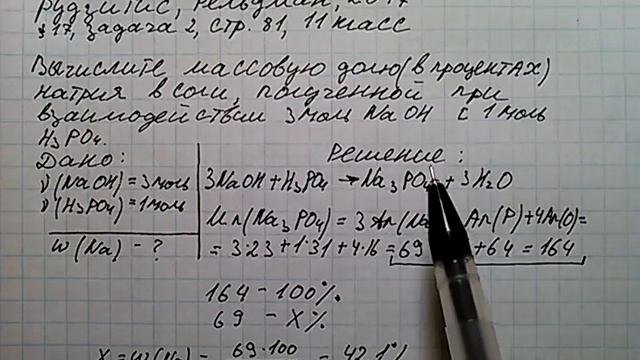 Рудзитис, Фельдман, 2017
§17, задача 2, стр. 81, 11 класс
Вычислите массовую долю (в процентах)
натрия в соли, полученной при
взаимодействии 3 моль NaOH с 1 моль
H₃PO₄.
Дано:
ν(NaOH) = 3 моль
ν(H₃PO₄) = 1 моль
w(Na) - ?
Решение:
3NaOH + H₃PO₄ → Na₃PO₄ + 3H₂O
Mr(Na₃PO₄) = 3Ar(Na Ar(P) + 4Ar(O) =
= 3·23 + 1·31 + 4·16 = 69 + 64 = 164
164 - 100%
69 - X%
X = w(Na) = 69·100 = 42,1%